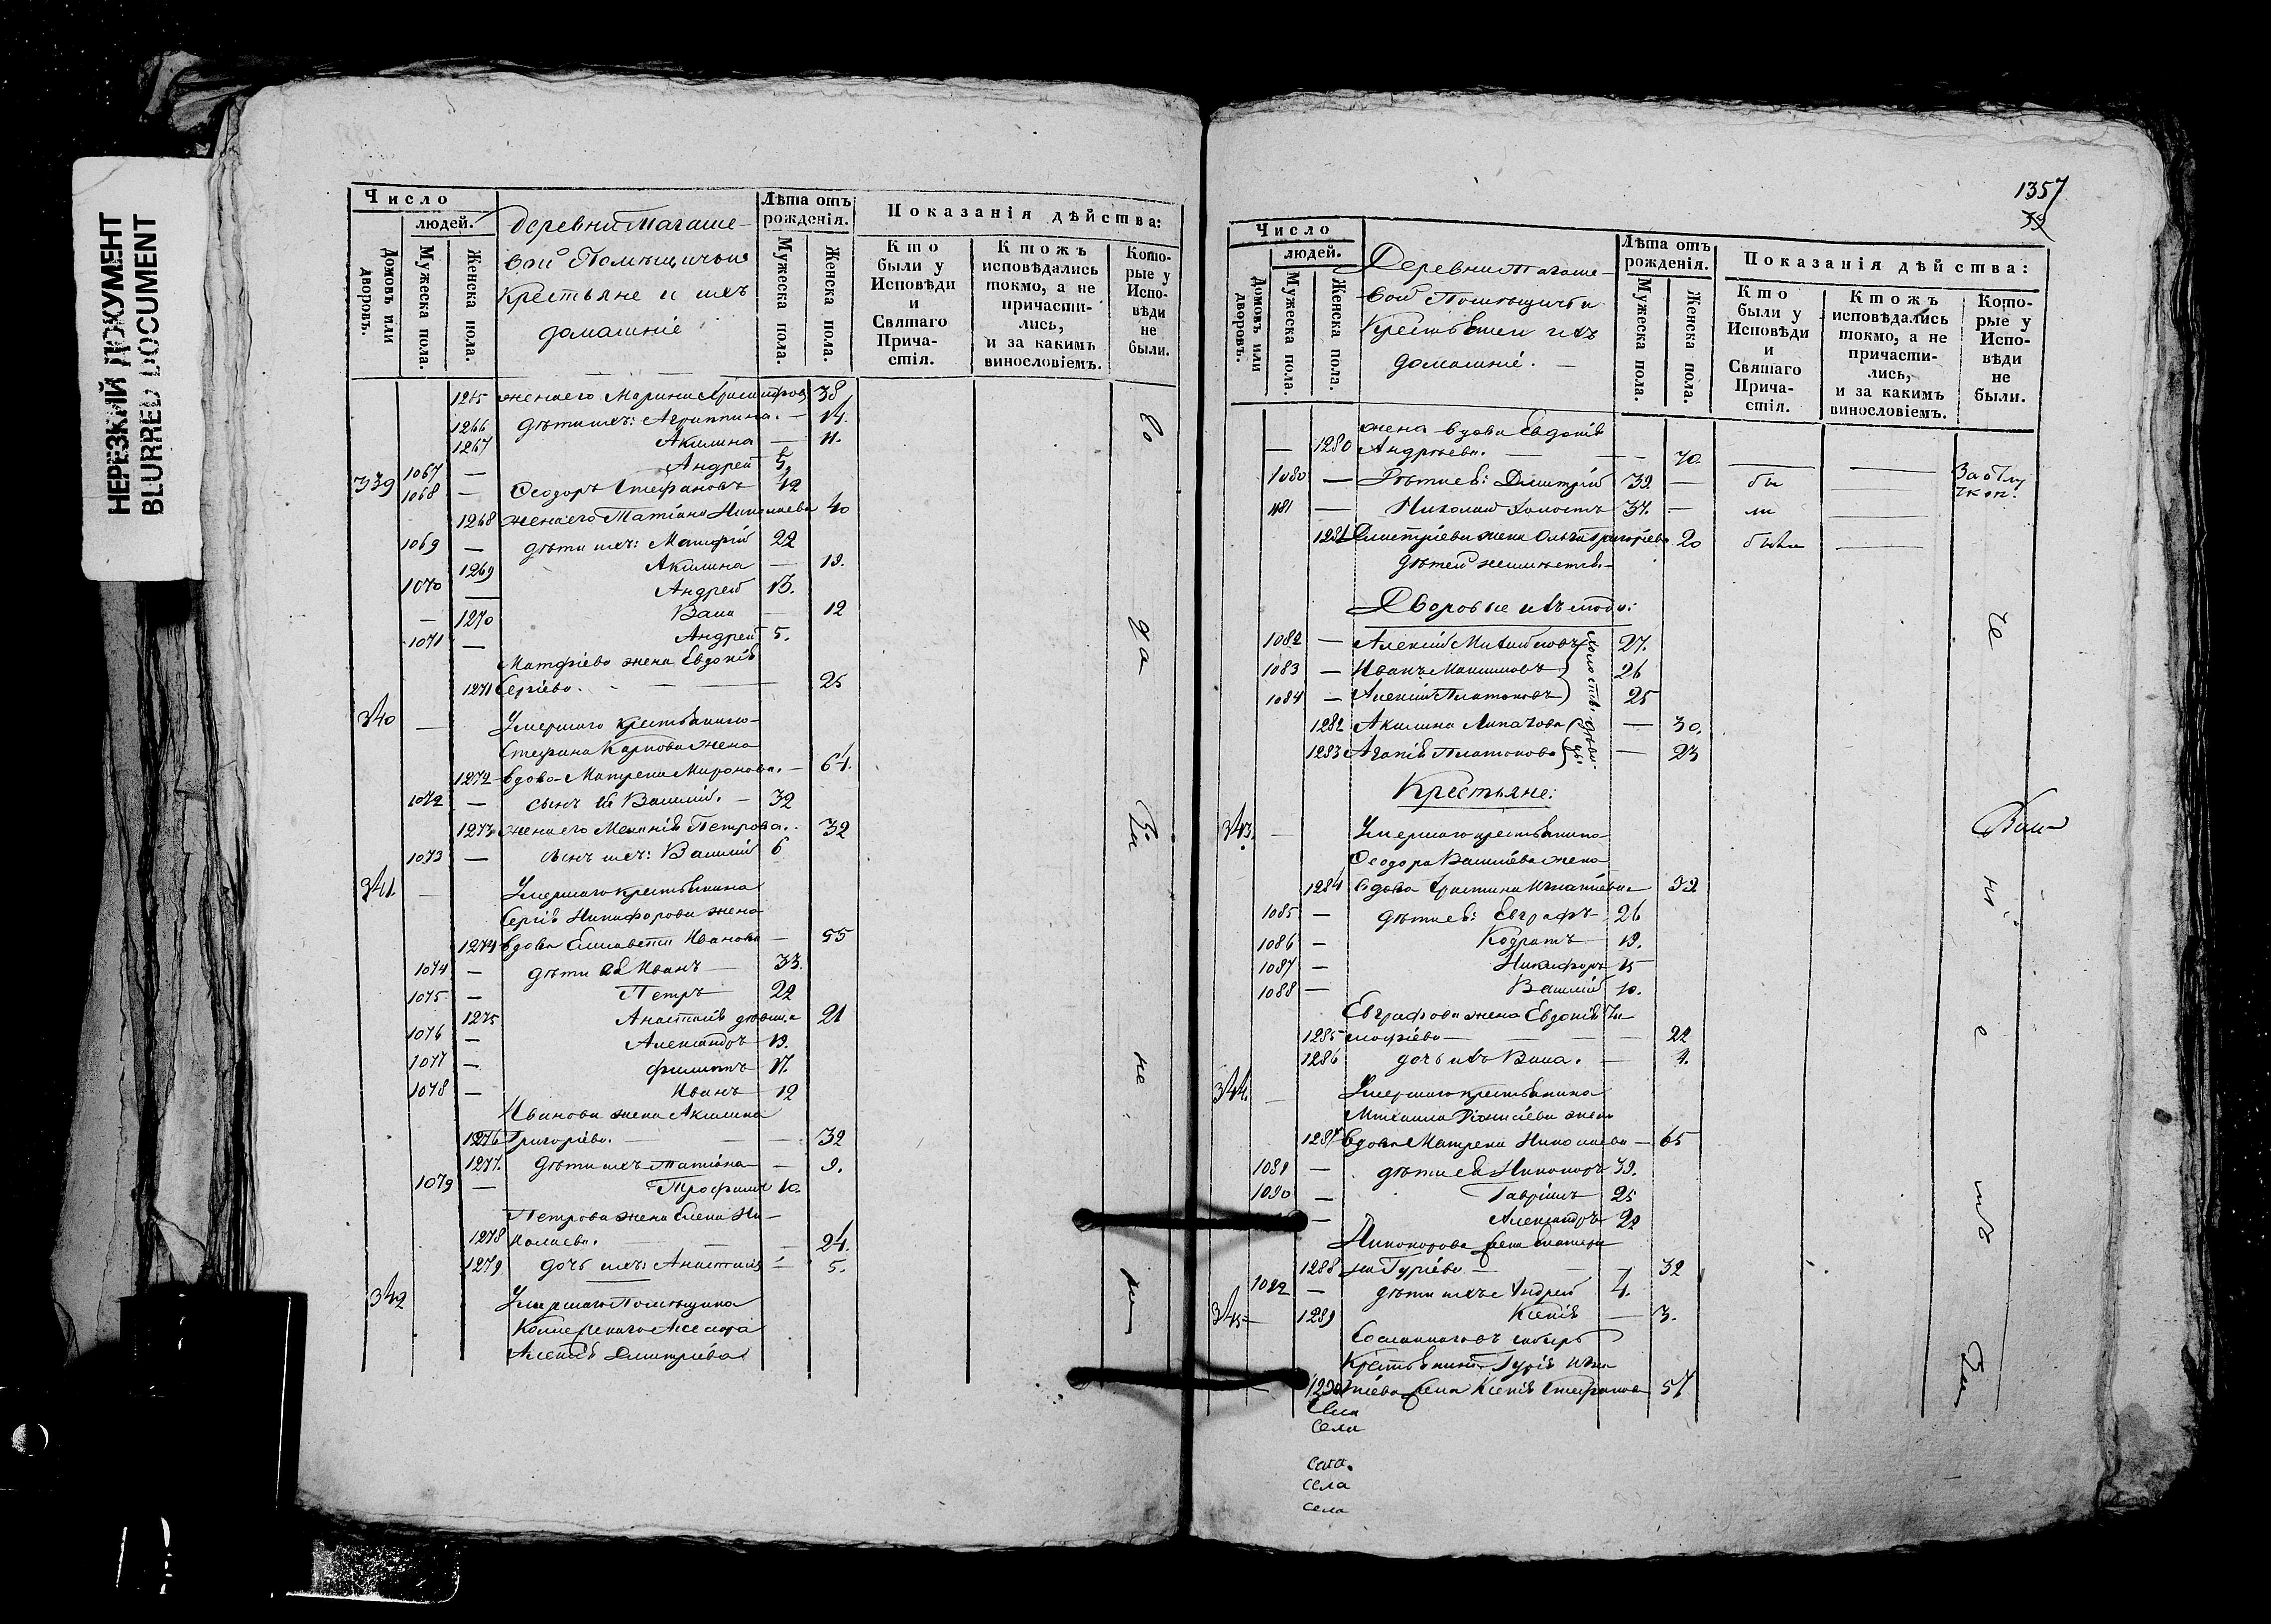 НЕРЕЗКИЙ ДОКУМЕНТ
BLURRED DOCUMENT
Число
людей.
Домовъ или дворовъ.
Мужеска пола.
Женска пола.
деревни Тагаше-
вой Помѣщичьи
Крестьяне и ихъ
домашніе
Лѣта отъ рожденія.
Мужеска пола.
Женска пола.
Показанія дѣйства:
Кто были у Исповѣди и Святаго Прича-стія.
Ктожъ исповѣдались токмо, а не причасти-лись, и за какимъ винословіемъ.
Кото-рые у Испо-вѣди не были.
1265 жена его Марина 38
1266 дѣти ихъ: Агриппина. — 14.
1267 Акилина — 11.
1067 — Андрей 5,
339 1068 — Ѳеодоръ Стефановъ 42
1268 жена его Татіана Николаева 40
1069 — дѣти ихъ: Матфій 22
1269 Акилина — 19.
1070 — Андрей 13.
— 1270 Васа — 12
1071 — Андрей 5.
Матфіева жена Евдокія
1271 Сергіева. — 25
340 — Умершаго крестьянина
Стефана Карпова жена
1272 вдова Матрена Миронова. — 64.
1072 — сынъ ея Василій. — 32
1273 жена его Меланія Петрова. 32
1073 — сынъ ихъ: Василій 6
341. — Умершаго крестьянина
Сергія Никифорова жена
1274 вдова Елисавета Иванова — 55
1074 — дѣти ея Иванъ — 33.
1075 — Петръ 22
1275 Анастасія дѣвица 21
1076 — Александръ 19.
1077 — Филиппъ 17.
1078 — Иванъ 12
Иванова жена Акилина
1276 Григорьева. — — 32
1277. дѣти ихъ Татіана — 9.
1079 — Трофимъ 10.
Петрова жена Елена Ни-
1278 колаева. — 24.
1279 дочь ихъ Анастасія — 5.
342 Умершаго Помѣщика
Коллежскаго Асесора
Алексѣя Дмитріева
1357
Число
людей.
Домовъ или дворовъ.
Мужеска пола.
Женска пола.
Деревни Тагаше-
вой Помѣщичьи
Крестьяне и ихъ
домашніе. —
Лѣта отъ рожденія.
Мужеска пола.
Женска пола.
Показанія дѣйства:
Кто были у Исповѣди и Святаго Прича-стія.
Ктожъ исповѣдались токмо, а не причасти-лись, и за какимъ винословіемъ.
Кото-рые у Испо-вѣди не были.
жена вдова Евдокія
— 1280 Андреева. — 70.
1080 — Дѣти ея: Димитрій 39 — бы
1081 — Николай Холостъ 37. — ли
1281 Дмитріева жена Ольга Григорьева 20 была
дѣтей не имѣетъ.
Дворовые ихъ люди:
1082 — Алексій 27.
1083 — Иванъ Максимовъ 26
1084 — Алексій Платоновъ 25
холосты
1282 Акилина — 30.
1283 Агапія Платонова — 23
Крестьяне:
343. — Умершаго крестьянина
Ѳеодора Васильева жена
1284 вдова Христина Игнатіева 52
1085 — дѣти ея: Евграфъ 26
1086 — Кодратъ 19.
1087 — Никифоръ 15
1088 — Василій 10.
Евграфова жена Евдокія Ти
1285 мофѣева — — 22
1286 дочь ихъ Васа. — 4.
344. — Умершаго крестьянина
Михаила жена
1287 вдова Матрена Николаева — 65
1089 — дѣти ея Никаноръ 39.
1090 — Гавріилъ 25
— Александръ 22
Никанорова жена Екатери
1288 на Гурьева — 32
1092 — дѣти ихъ Андрей 4.
345 — 1289 Ксенія — 3.
Сосланнаго въ Сибирь
Крестьянина Гурія Игна
1290 тіева жена Ксенія Стефанова 57
села
села
села
села